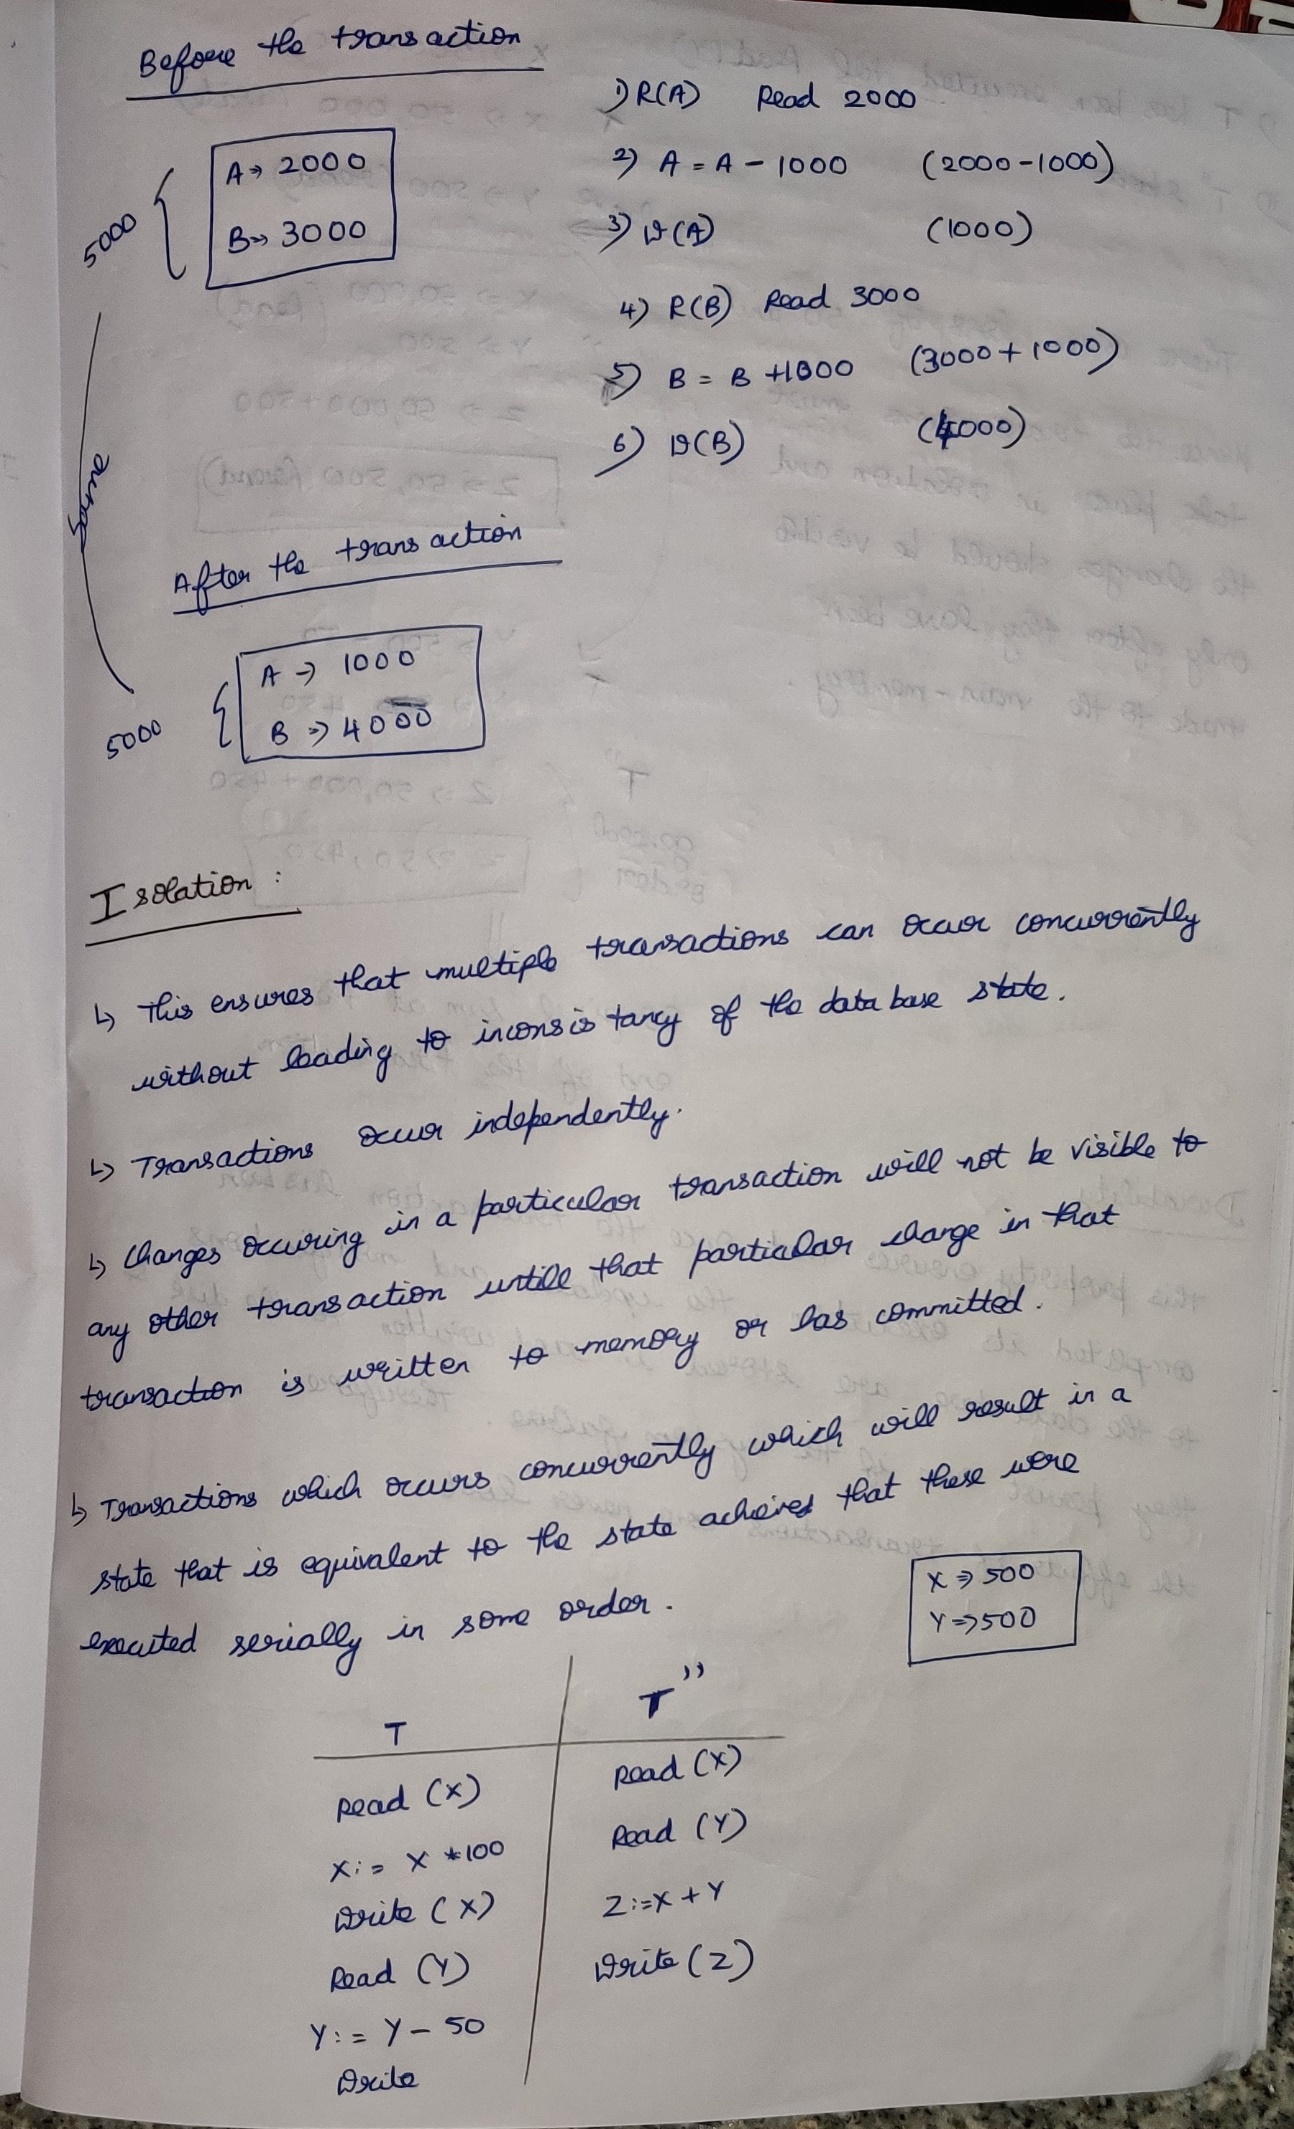 Before the transaction
A → 2000
B → 3000
5000
1) R(A) Read 2000
2) A = A - 1000 (2000-1000)
3) W(A) (1000)
4) R(B) Read 3000
5) B = B +1000 (3000+1000)
6) W(B) (4000)
same
After the transaction
A → 1000
B => 4000
5000
Isolation :
↳ This ensures that multiple transactions can occur concurrently
without leading to inconsistancy of the data base state.
↳ Transactions occur independently.
↳ Changes occuring in a particular transaction will not be visible to
any other transaction untill that particular change in that
transaction is written to memory or has committed.
↳ Transactions which occurs concurrently which will result in a
state that is equivalent to the state acheived that these were
executed serially in some order.
X => 500
Y => 500
T T''
Read (X) Read (X)
X := X *100 Read (Y)
Write (X) Z:=X+Y
Read (Y) Write (Z)
Y := Y - 50
Write